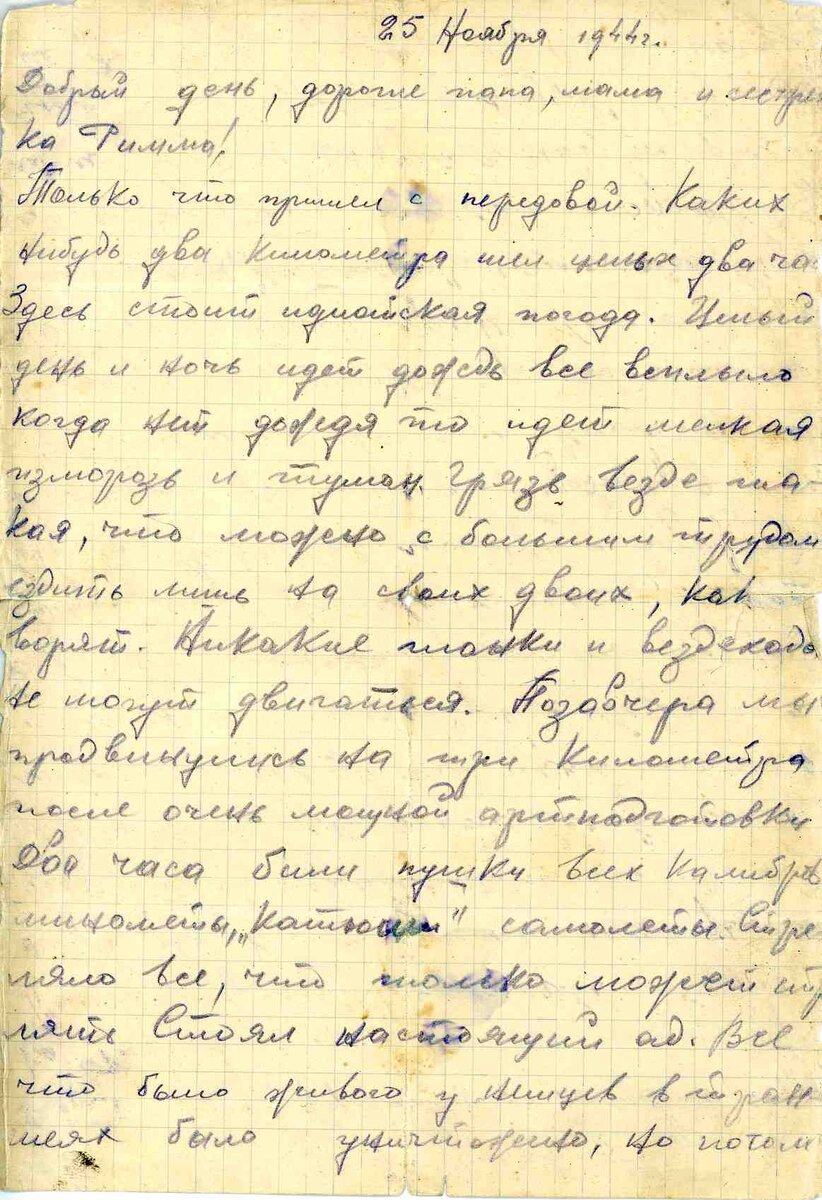 25 Ноября 1944г.
Добрый день, дорогие папа, мама и сестрен
ка Римма!
Только что пришел с передовой. Каких
нибудь два километра шел целых два ча
Здесь стоит идиотская погода. Целый
день и ночь идет дождь все всплыло
когда нет дождя то идет мелкая
изморозь и туман. Грязь везде та-
кая, что можно с большим трудом
ездить лишь на своих двоих, как
ворят. Никакие танки и вездеходы
не могут двигаться. Позавчера мы
продвинулись на три километра
после очень мощной артподготовки
Два часа били пушки всех калибров
минометы, „Катюши" самолеты. Стре
ляло все, что только может стр
лять Стоял настоящий ад. Все
что было живого у немцев в тран
шеях было уничтожено, но потом